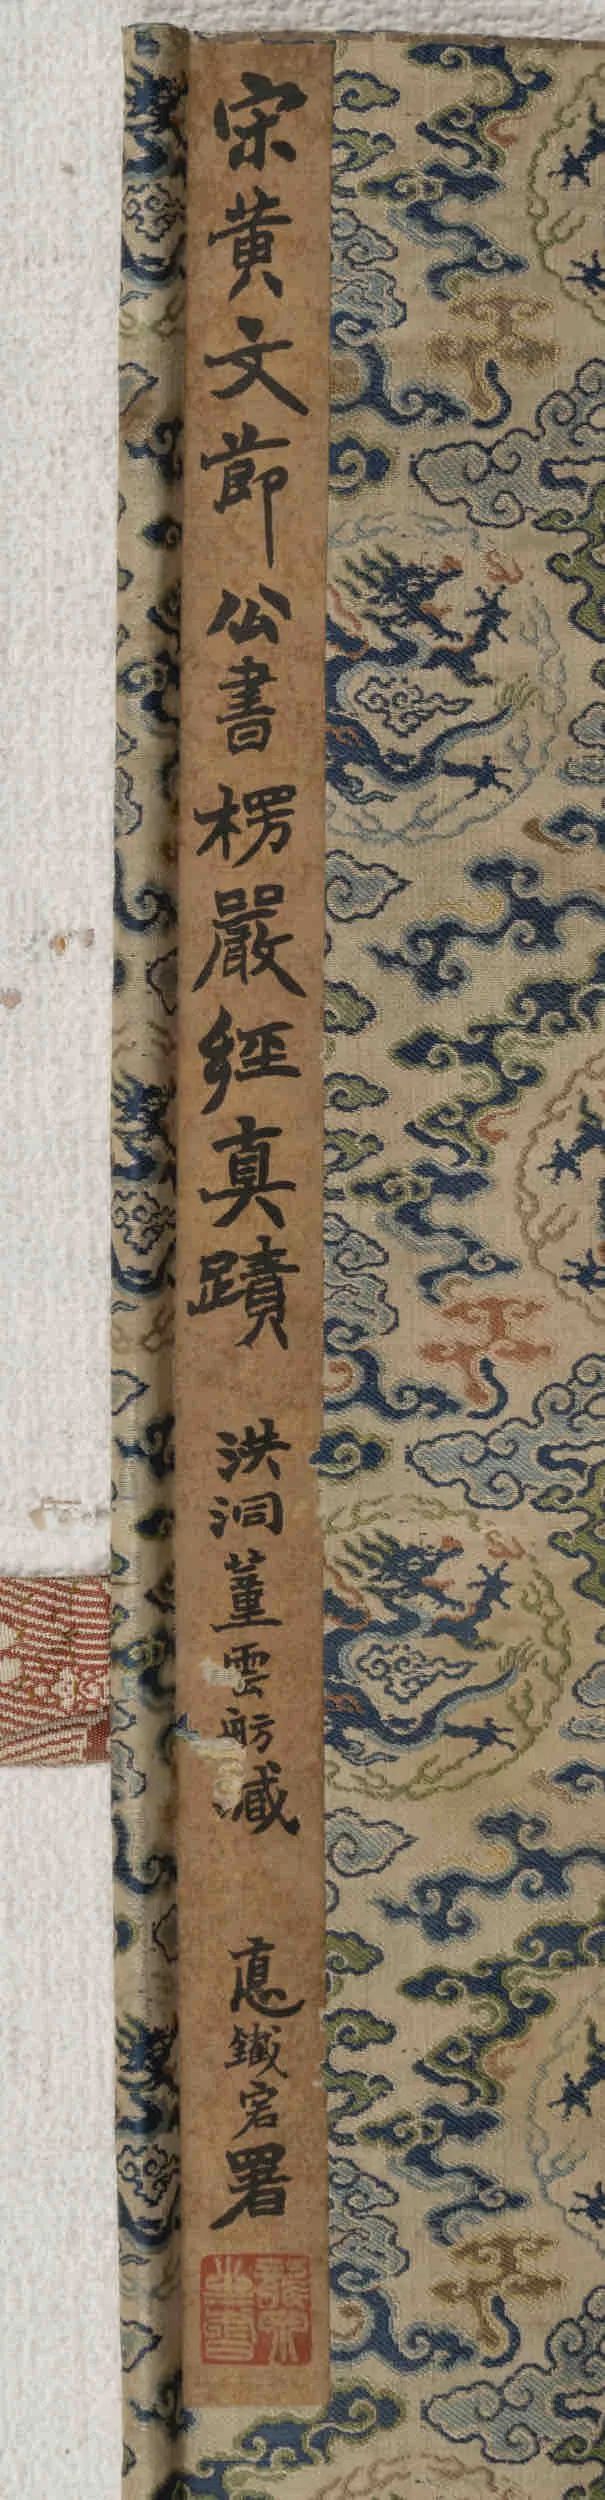 宋黃文節公書楞嚴經真蹟
洪洞董雲舫藏
鐵宕署